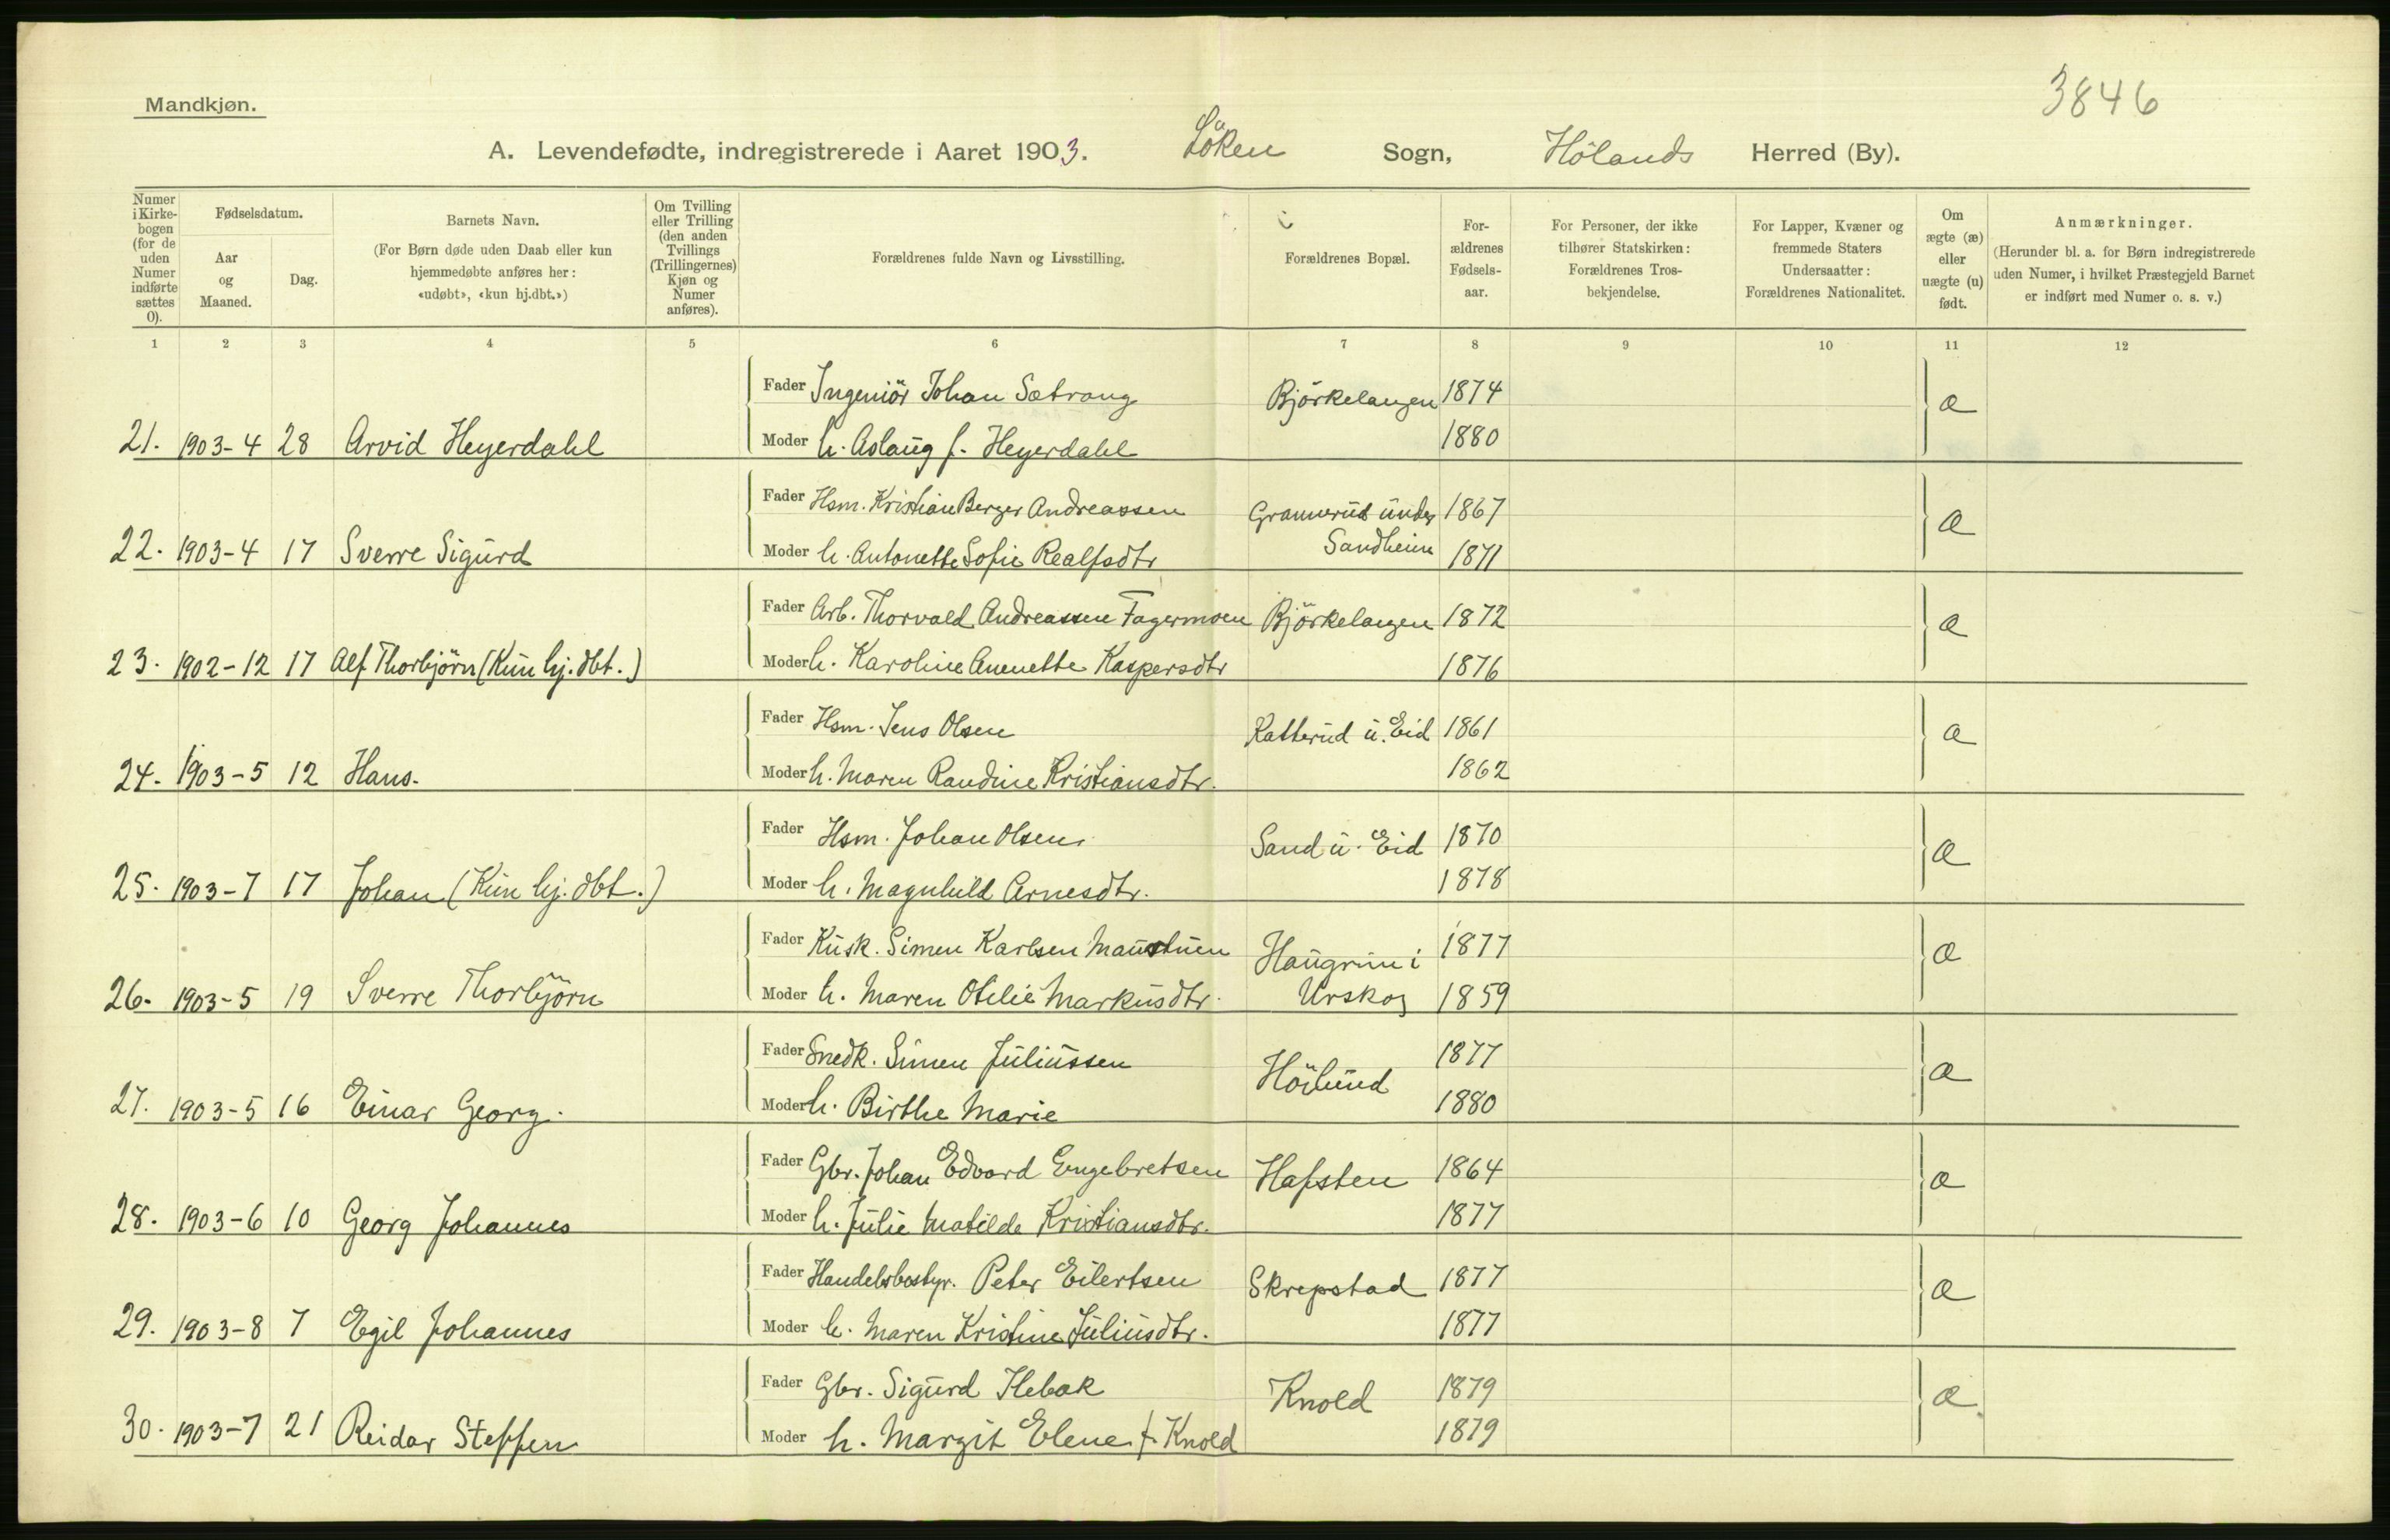 Mandkjøn.
3846
A. Levendefødte, indregistrerede i Aaret 1903. Löken Sogn, Hölands Herred (By).
Numer i Kirkebogen (for de uden Numer indførte sættes 0).
Fødselsdatum.
Aar og Maaned.
Dag.
Barnets Navn.
(For Børn døde uden Daab eller kun hjemmedøbte anføres her: «udøbt», «kun hj.dbt.»)
Om Tvilling eller Trilling (den anden Tvillings (Trillingernes) Kjøn og Numer anføres).
Forældrenes fulde Navn og Livsstilling.
Forældrenes Bopæl.
Forældrenes Fødselsaar.
For Personer, der ikke tilhører Statskirken: Forældrenes Trosbekjendelse.
For Lapper, Kvæner og fremmede Staters Undersaatter: Forældrenes Nationalitet.
Om ægte (æ) eller uægte (u) født.
Anmærkninger.
(Herunder bl. a. for Børn indregistrerede uden Numer, i hvilket Præstegjeld Barnet er indført med Numer o. s. v.)
1 2 3 4 5 6 7 8 9 10 11 12
Fader Ingeniör Johan Sætrang Björkelangen 1874 æ
21. 1903-4 28 Arvid Heyerdahl Moder h. Aslaug f. Heyerdahl 1880
Fader Hsm. Kristian Berger Andreassen Grannerud under 1867 æ
22. 1903-4 17 Sverre Sigurd Moder h. Antonette Sofie Realfsdtr Sandheim 1871
Fader Arb. Thorvald Andreassen Fagermoen Björkelangen 1872 æ
23. 1902-12 17 Alf Thorbjörn (Kun hj. dbt.) Moder h. Karoline Annette Kaspersdtr 1876
Fader Hsm. Jens Olsen Katterud u. Eid 1861 æ
24. 1903-5 12 Hans. Moder h. Maren Randine Kristiansdtr. 1862
Fader Hsm. Johan Olsen Sand u. Eid 1870 æ
25. 1903-7 17 Johan (Kun hj. dbt.) Moder h. Magnhild Arnesdtr. 1878
Fader Kusk. Simen Karlsen Maustuen Haugrim i 1877 æ
26. 1903-5 19 Sverre Thorbjörn Moder h. Maren Otelie Markusdtr. Urskog 1859
Fader Snedk. Simen Juliussen Höilund 1877 æ
27. 1903-5 16 Einar Georg. Moder h. Birthe Marie 1880
Fader Gbr. Johan Edvard Engebretsen Hafsten 1864 æ
28. 1903-6 10 Georg Johannes Moder h. Julie Matilde Kristiansdtr. 1877
Fader Handelsbestyr. Peter Eilertsen Skrepstad 1877 æ
29. 1903-8 7 Egil Johannes Moder h. Maren Kristine Juliusdtr. 1877
Fader Gbr. Sigurd Ilebæk Knold 1879 æ
30. 1903-7 21 Reidar Steffen Moder h. Margit Elene f. Knold 1879